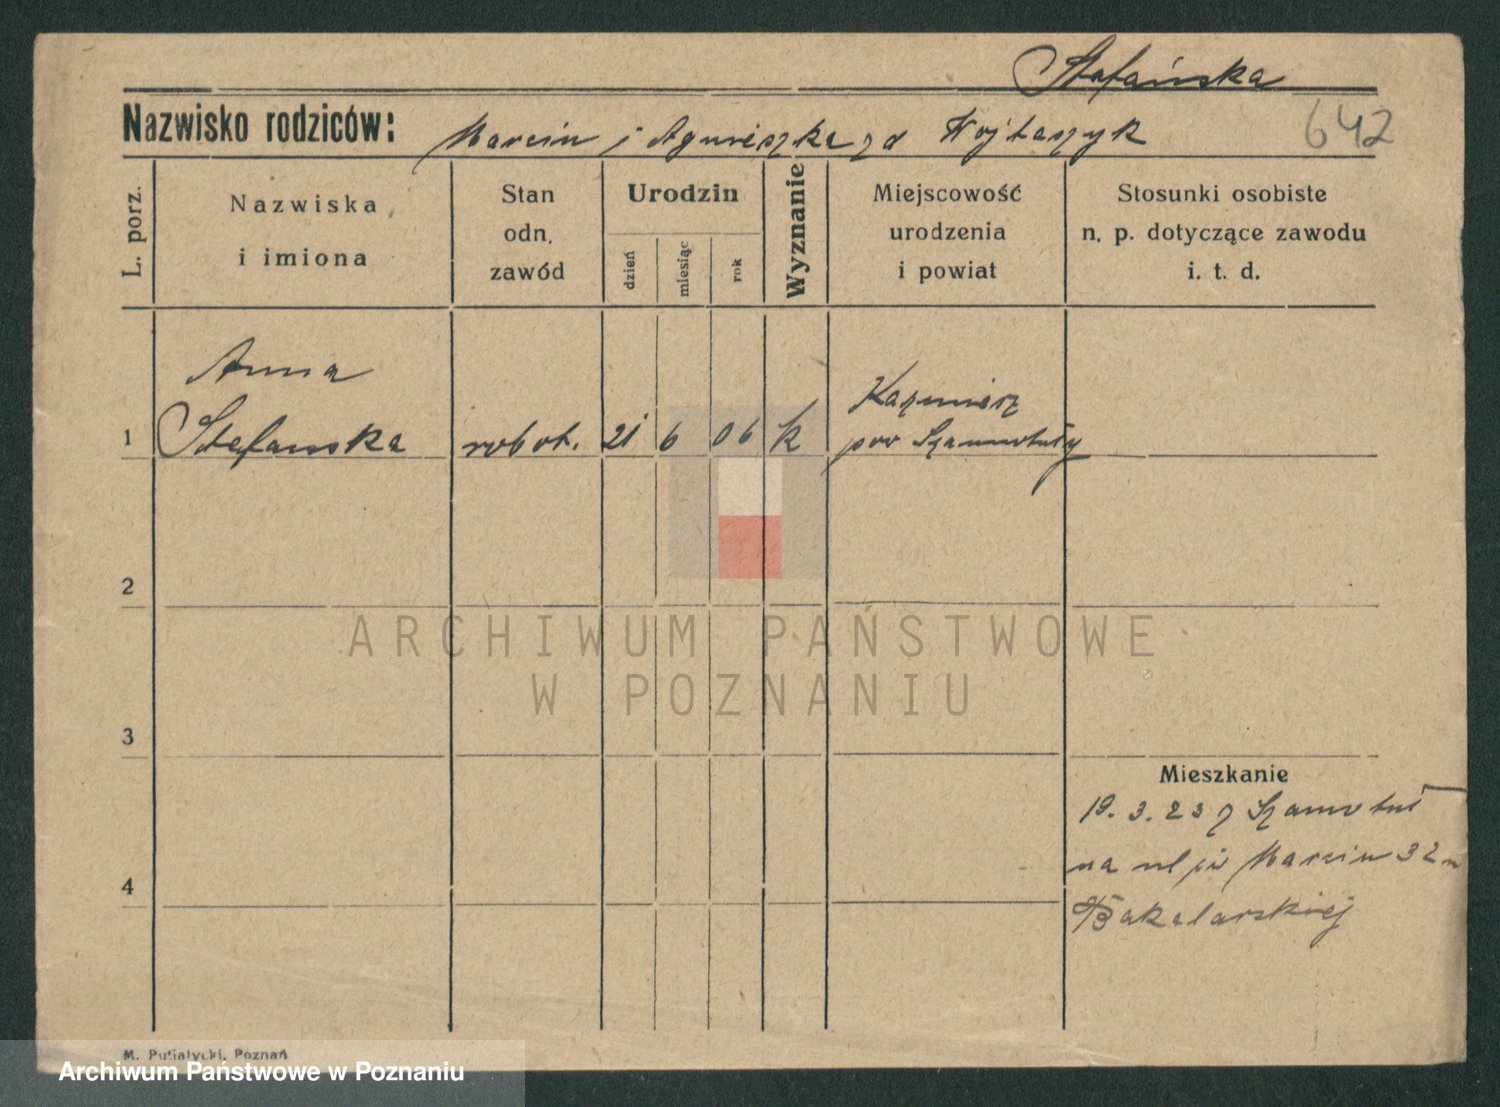 Stefańska
Nazwisko rodziców: Marcin i Agnieszka zd Wojtaszyk
642
L. porz.
Nazwiska
i imiona
Stan
odn.
zawód
Urodzin
dzień
miesiąc
rok
Wyznanie
Miejscowość
urodzenia
i powiat
Stosunki osobiste
n. p. dotyczące zawodu
i. t. d.
Anna
1 Stefanska robot. 21 6 06 k
Kazmierz
pow Szamotuły
2
3
4
Mieszkanie
19. 3. 23 z Szamotuł
na ul św Marcin 32
Bakalarskiej
ARCHIWUM PAŃSTWOWE
W POZNANIU
M. Putiatycki, Poznań
Archiwum Państwowe w Poznaniu